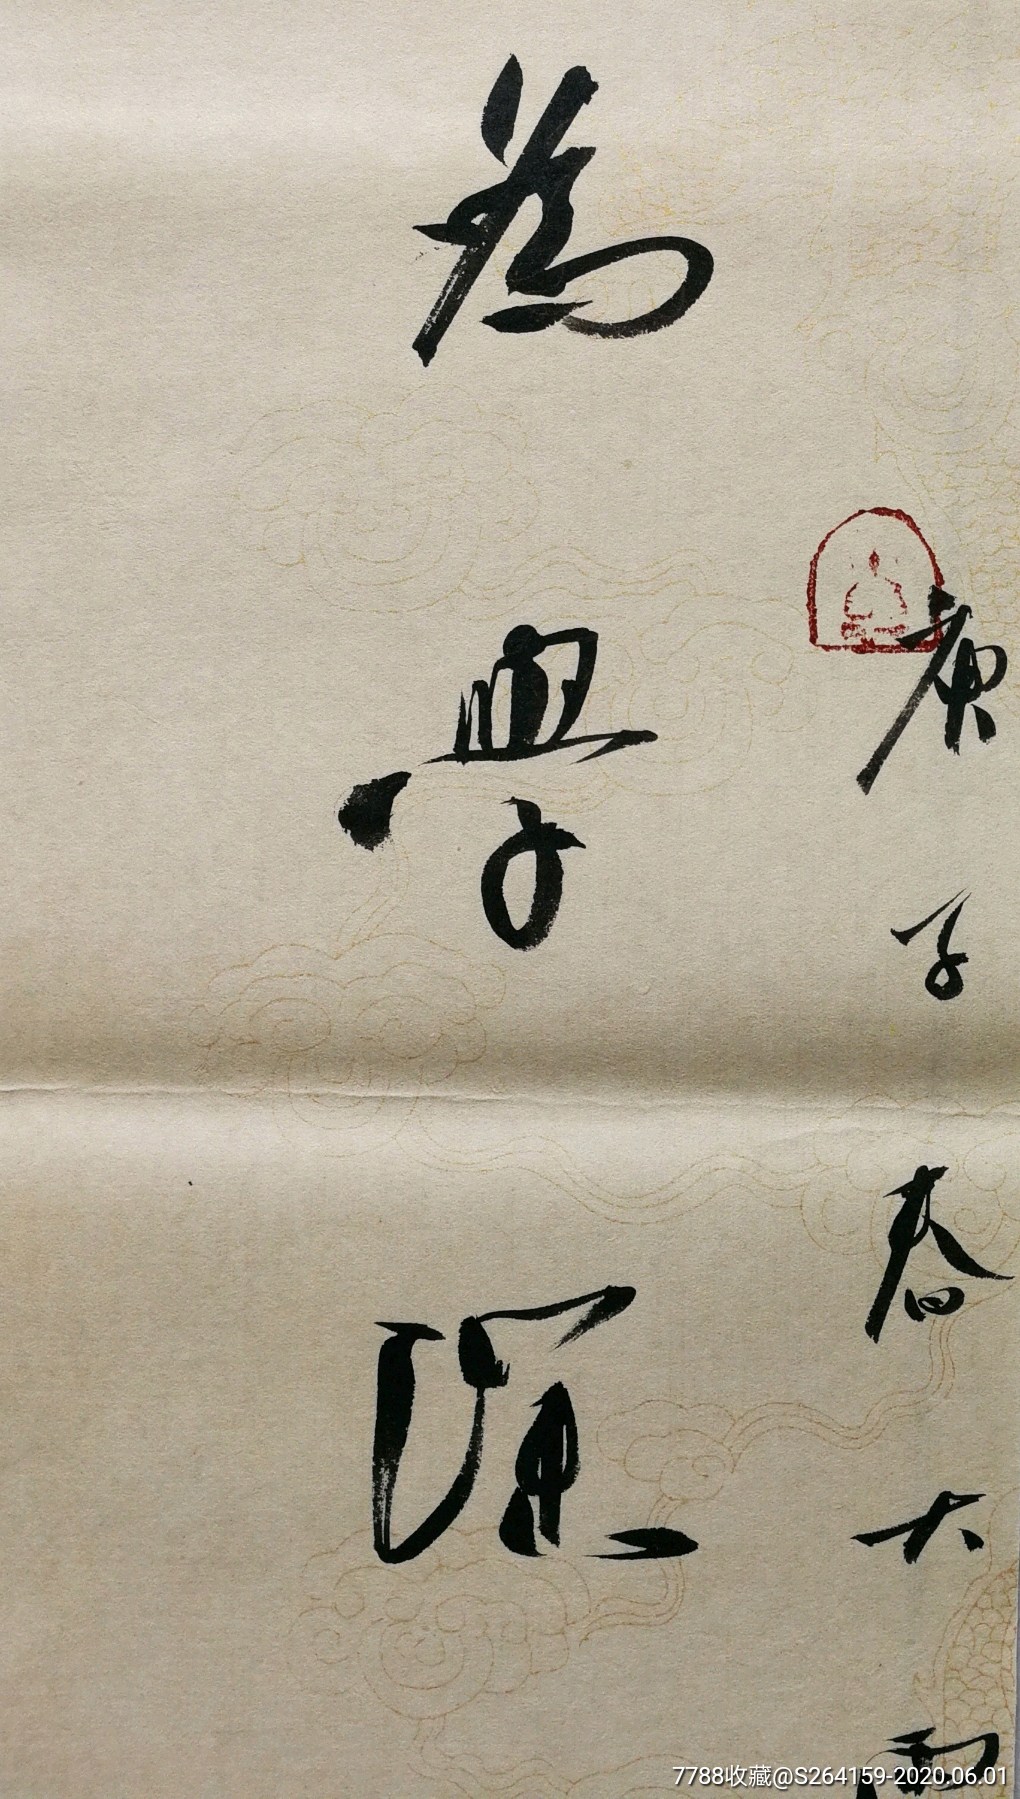 庚子春大雨
為學
7788收藏@S264159-2020.06.01